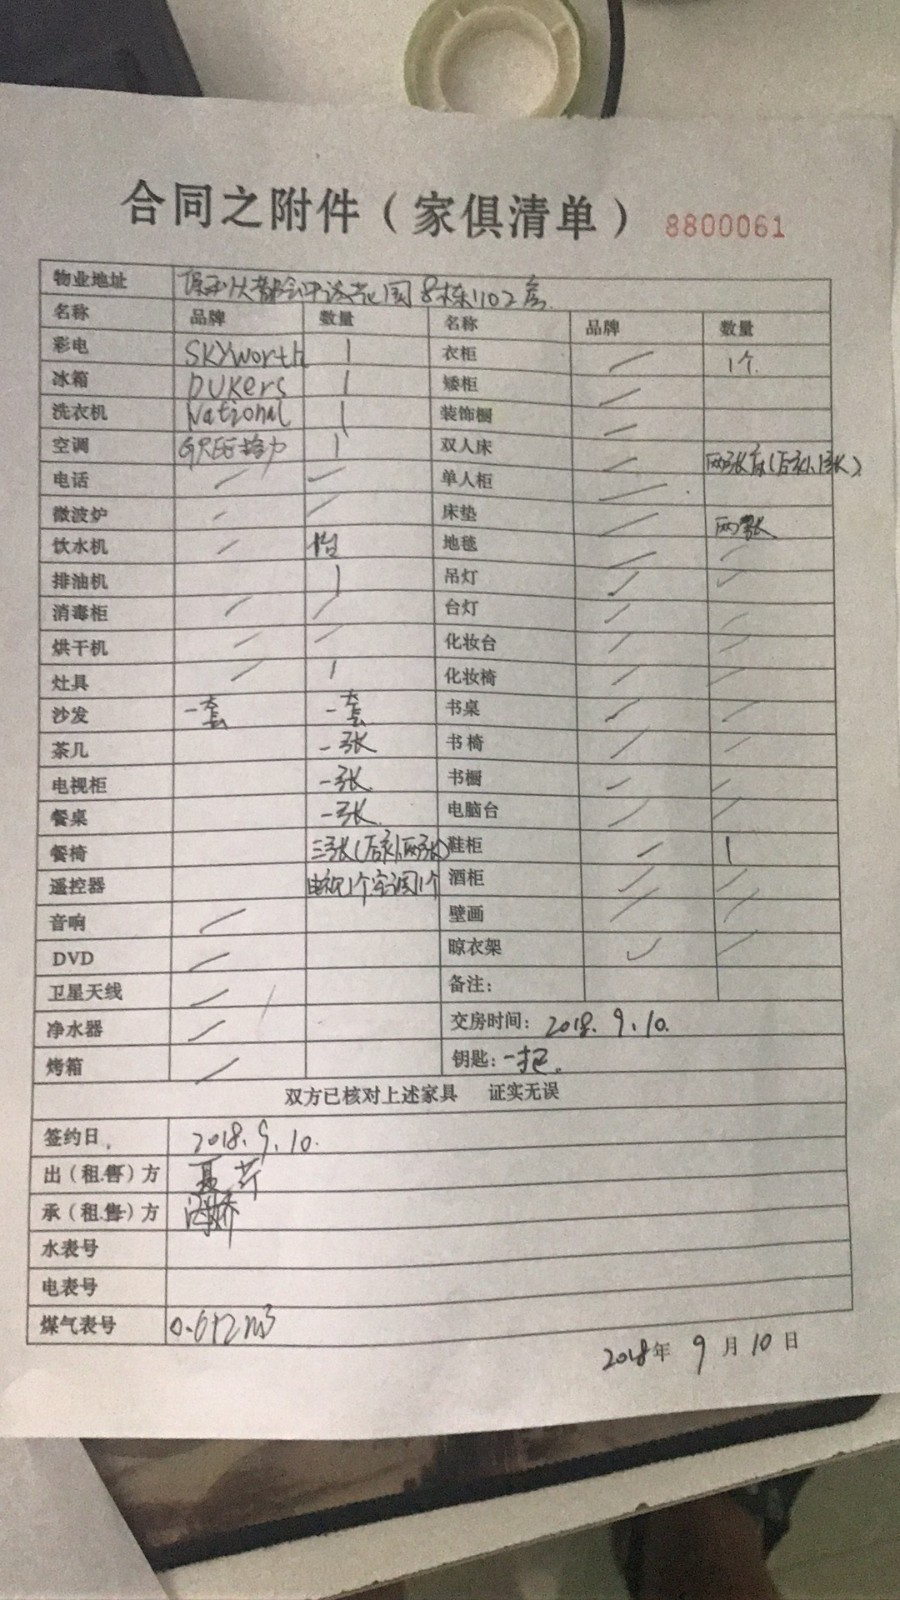 合同之附件（家俱清单） 8800061
物业地址 8栋1102房
名称 品牌 数量 名称 品牌 数量
彩电 SKYWorth 1 衣柜 1个
冰箱 DUKers 1 矮柜
洗衣机 National 1 装饰橱
空调 GREE格力 1 双人床 两张床(后补1张)
电话 单人柜
微波炉 床垫 两张
饮水机 地毯
排油机 1 吊灯
消毒柜 台灯
烘干机 化妆台
灶具 1 化妆椅
沙发 一套 一套 书桌
茶几 一张 书椅
电视柜 一张 书橱
餐桌 一张 电脑台
餐椅 三张(后补两张) 鞋柜 1
遥控器 电视1个空调1个 酒柜
音响 壁画
DVD 晾衣架
卫星天线 备注：
净水器 交房时间：2018.9.10.
烤箱 钥匙：一把。
双方已核对上述家具 证实无误
签约日 2018.9.10.
出（租.售）方
承（租.售）方
水表号
电表号
煤气表号 0.612m3
2018年 9月10日